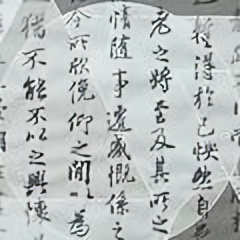 暫得於己怏然自
老之將至及其所之
情隨事遷感慨係之
所欣俛仰之間以為
猶不能不以之興懷